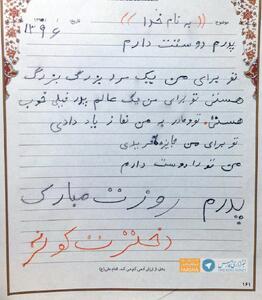 موضوع ((به نام خدا)) تاریخ
۱۳۹۶
پدرم دوستت دارم
تو برای من یک مرد بزرگ بزرگ
هستی تو برای من یک عالم پدر خیلی خوب
هستی. تو و مادر به من نماز یاد دادی
تو برای من جایزه خریدی
من تو را دوست دارم
پدرم روزت مبارک
دخترت کوثر
خبرگزاری فارس
۱۶۱